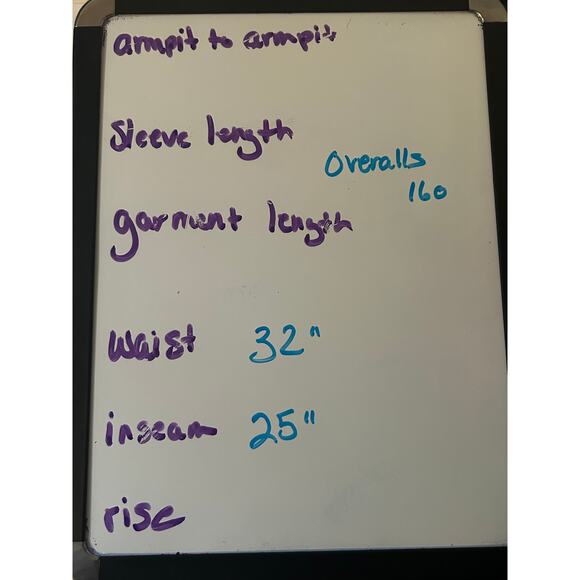 armpit to armpit
Sleeve length
Overalls
160
garment length
Waist 32"
inseam 25"
rise